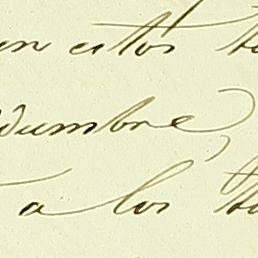 en estos
dumbre,
a los